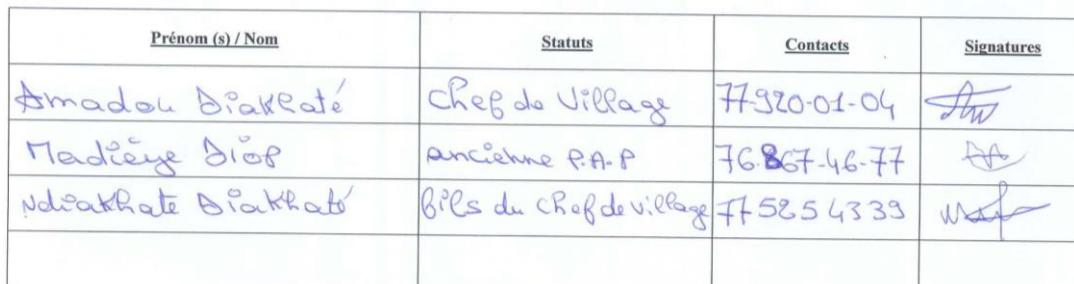 Prénom (s) / Nom Statuts Contacts Signatures
Amadou Diakhaté Chef de Village 77-920-01-04
Madièye Diop ancienne P.A.P 76.867-46-77
Ndiakhate Diakhaté fils du chef de village 77 525 43 39